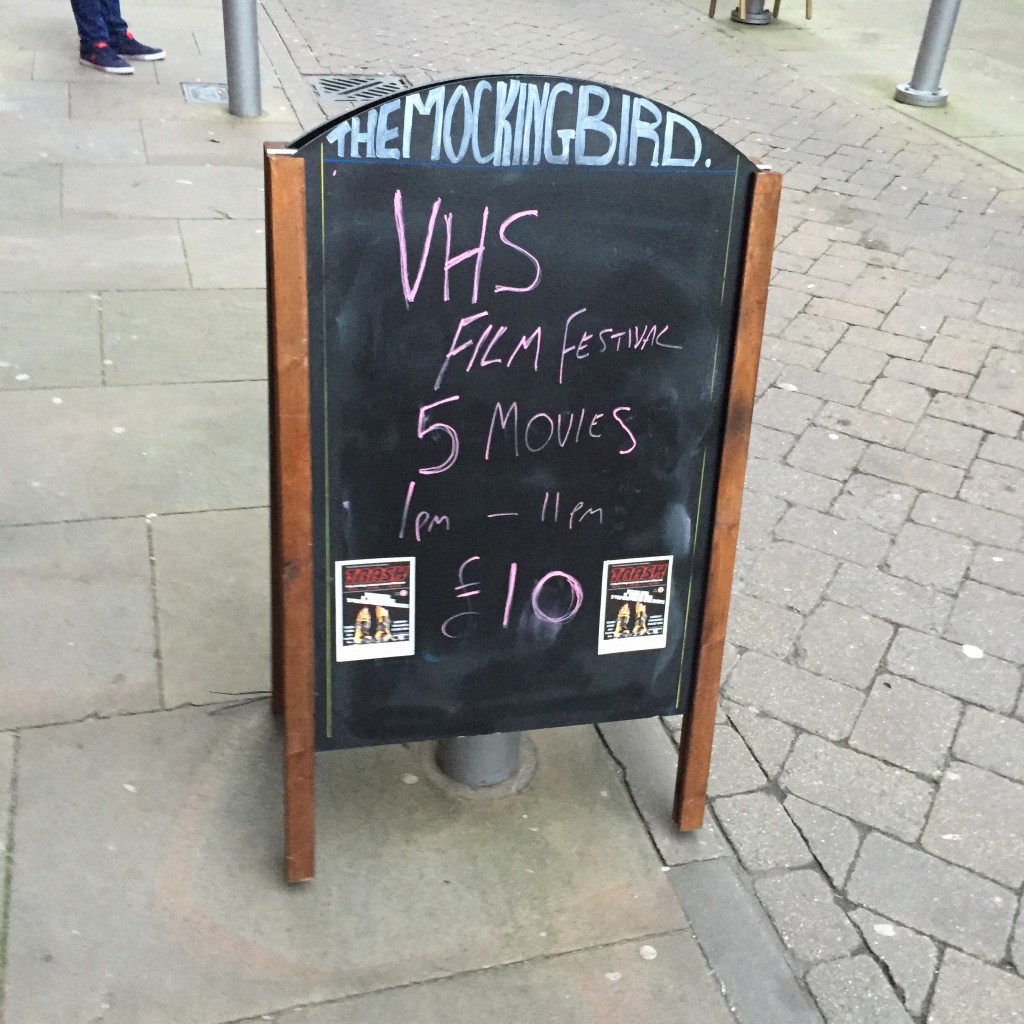 THE MOCKINGBIRD.
VHS
FILM FESTIVAL
5 MOVIES
1pm - 11pm
£10
TRASH
TRASH